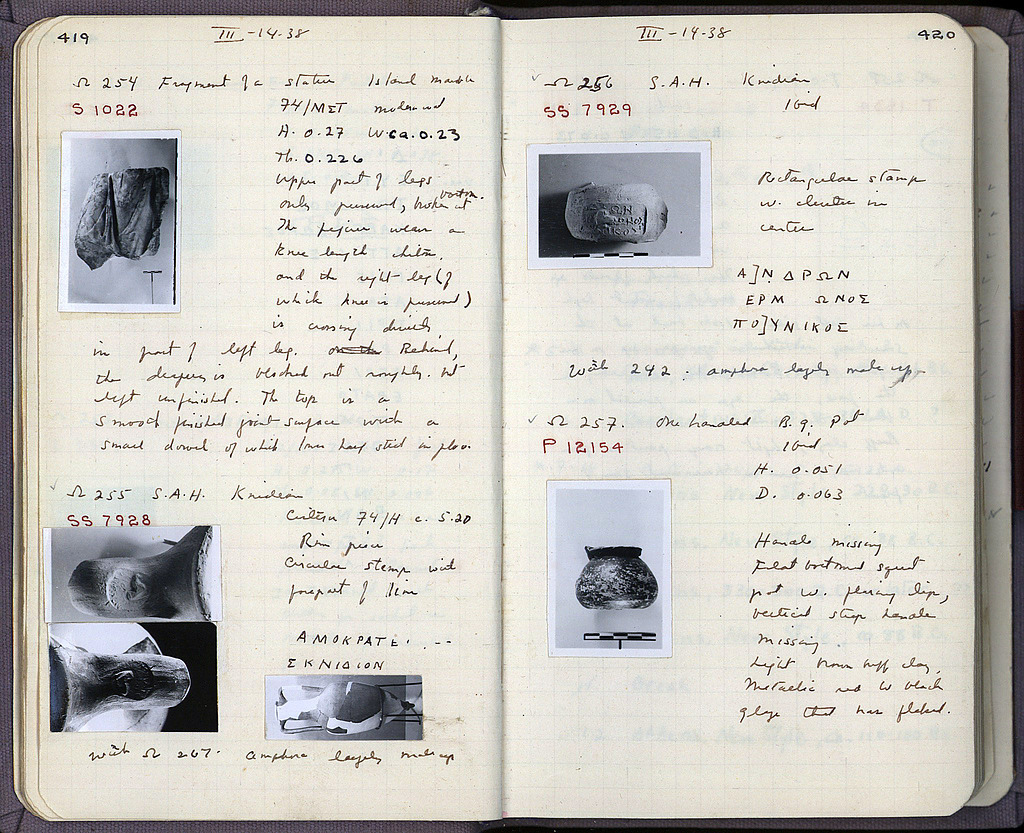 419
III -14-38
Ω 254 Fragment of a statue Island marble
S 1022
74/MET modern wd
H. 0.27 W. ca. 0.23
Th. 0.226
Upper part of legs
only preserved, broken at bottom.
The figure wears a
knee length chiton.
and the right leg (of
which knee is preserved)
is crossing directly
in front of left leg. Behind,
the drapery is blocked out roughly. but
left unfinished. The top is a
smooth finished joint surface with a
small dowel of which lower half still in place.
Ω 255 S.A.H. Knidian
SS 7928
Cistern 74/H c. 5.20
Rim piece
Circular stamp with
forepart of lion
ΑΜΟΚΡΑΤΕ . --
ΣΚΝΙΔΙΟΝ
with Ω 267. amphora largely made up
420
III -14-38
Ω 256 S.A.H. Knidian
SS 7929
Ibid
Rectangular stamp
w. cluster in
center
Α]Ν ΔΡΩΝ
ΕΡΜ ΩΝΟΣ
ΠΟ]ΥΝΙΚΟΣ
With 242. amphora largely made up
Ω 257. One handled B.g. Pot
P 12154
Ibid
H. 0.051
D. 0.063
Handle missing
Flat bottomed squat
pot w. flaring lip,
vertical strap handle
missing.
Light brown buff clay,
Metallic red to black
glaze that has flaked.